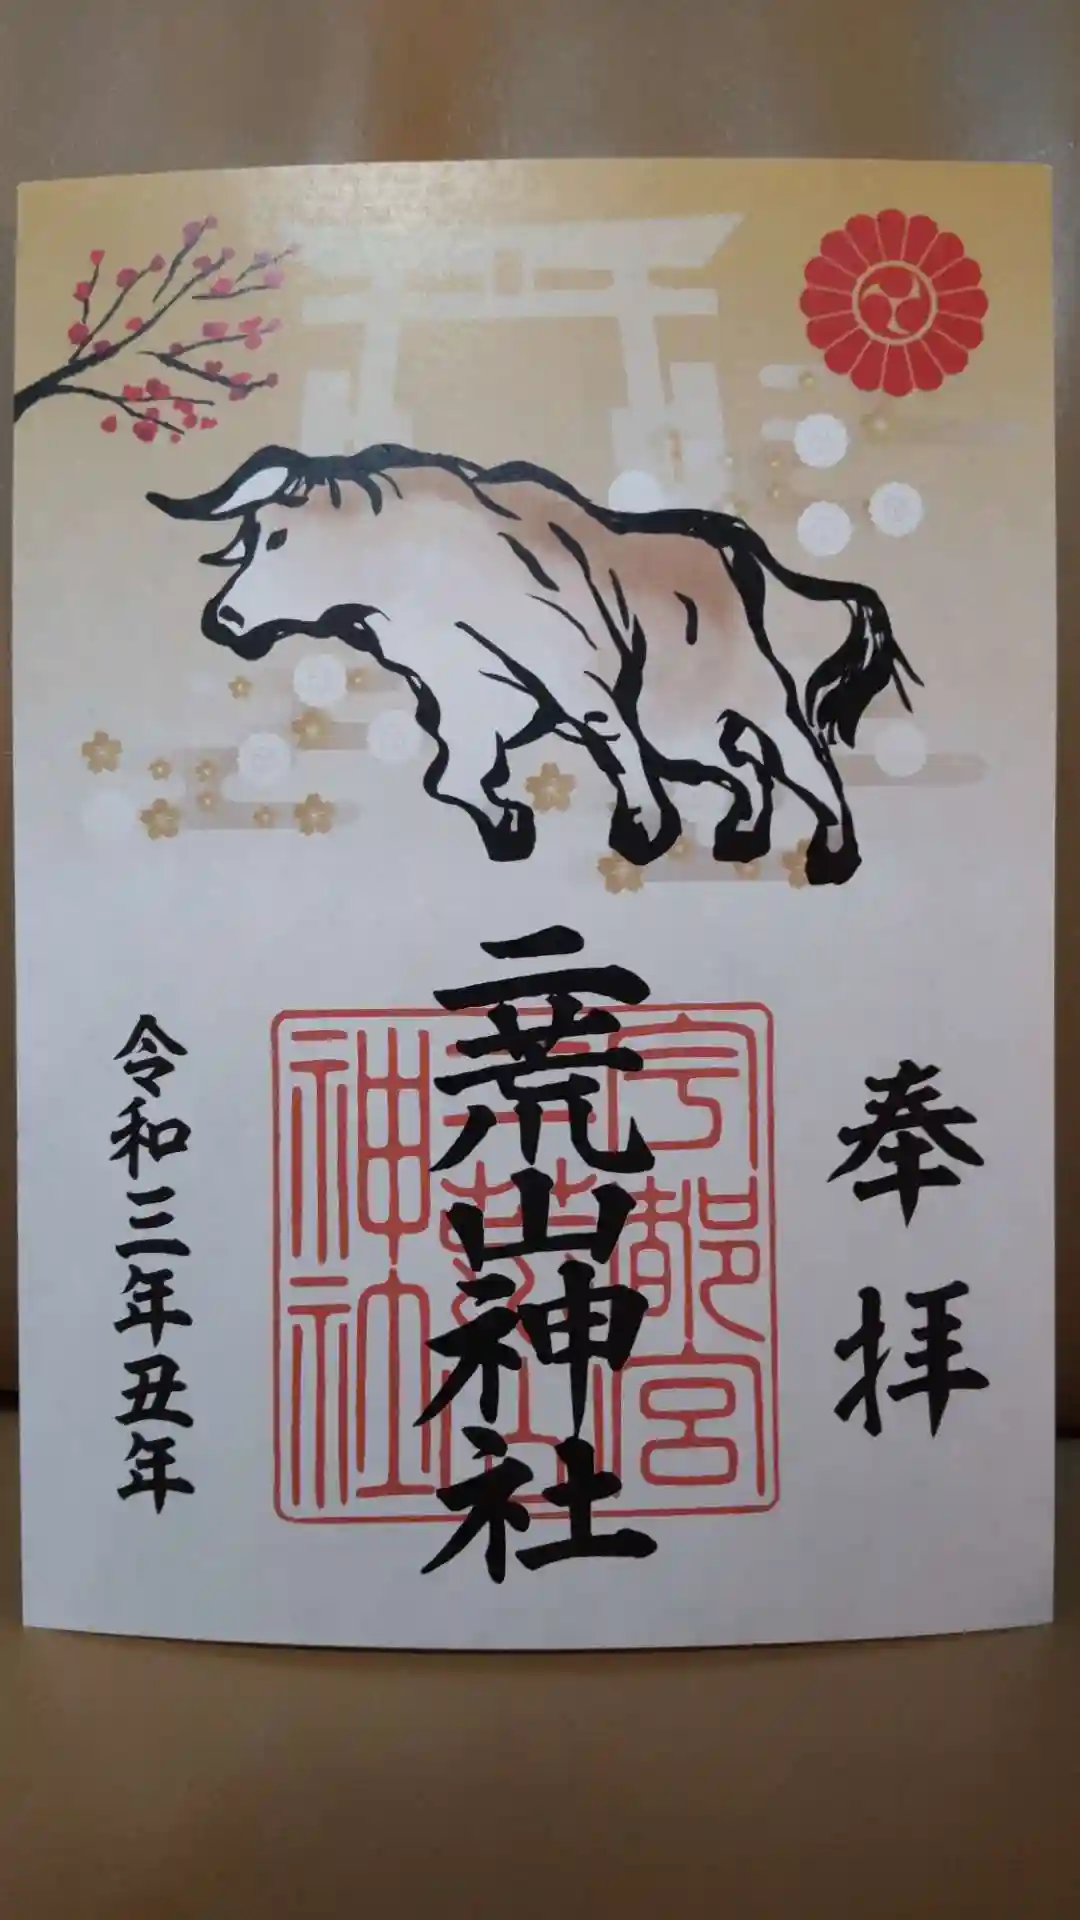 奉拝
二荒山神社
宇都宮
二荒山
神社
令和三年丑年